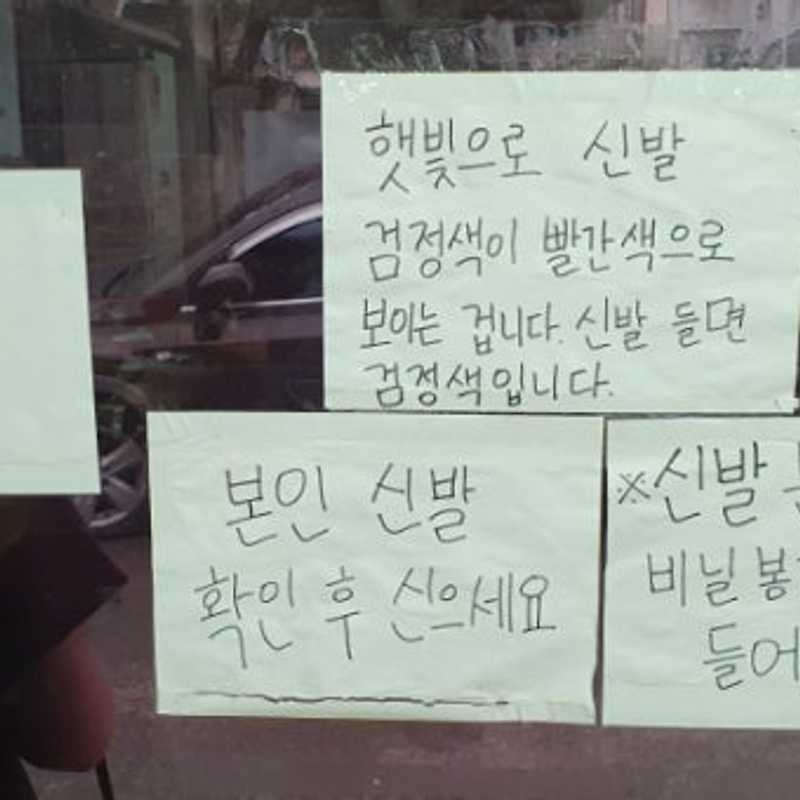 햇빛으로 신발
검정색이 빨간색으로
보이는 겁니다. 신발 들면
검정색입니다.
본인 신발
확인 후 신으세요
※신발
비닐
들어